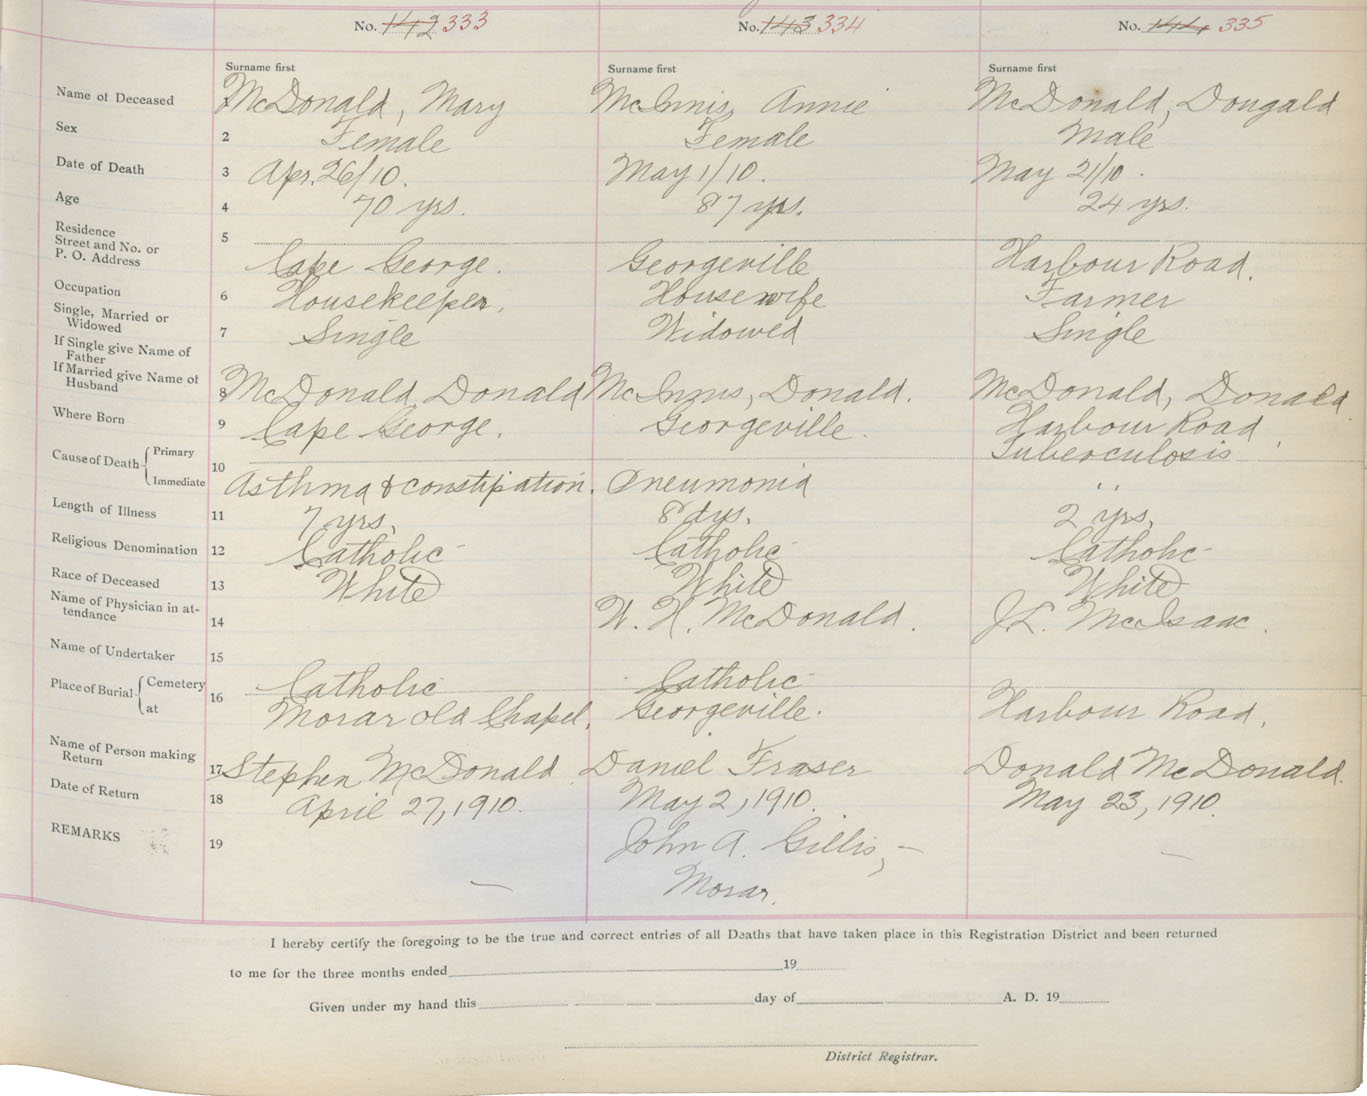 No. 142 333 No. 143 334 No. 144 335
Surname first Surname first Surname first
Name of Deceased 1 McDonald, Mary McInnis, Annie McDonald, Dougald
Sex 2 Female Female Male
Date of Death 3 Apr. 26/10. May 1/10. May 21/10.
Age 4 70 yrs. 87 yrs. 24 yrs.
Residence
Street and No. or
P. O. Address 5 Cape George. Georgeville Harbour Road.
Occupation 6 Housekeeper. Housewife Farmer
Single, Married or
Widowed 7 Single Widowed Single
If Single give Name of
Father
If Married give Name of
Husband 8 McDonald, Donald McInnis, Donald. McDonald, Donald
Where Born 9 Cape George. Georgeville. Harbour Road,
Cause of Death Primary 10 Tuberculosis
Immediate Asthma & constipation. Pneumonia " "
Length of Illness 11 7 yrs. 8 dys. 2 yrs.
Religious Denomination 12 Catholic Catholic Catholic
Race of Deceased 13 White White White
Name of Physician in at-
tendance 14 W. H. McDonald. J.L. McIsaac.
Name of Undertaker 15
Place of Burial Cemetery 16 Catholic Catholic
at Morar Old Chapel. Georgeville. Harbour Road.
Name of Person making
Return 17 Stephen McDonald Daniel Fraser Donald McDonald.
Date of Return 18 April 27, 1910. May 2, 1910. May 23, 1910.
REMARKS 19 — John A. Gillis, — —
Morar.
I hereby certify the foregoing to be the true and correct entries of all Deaths that have taken place in this Registration District and been returned
to me for the three months ended 19
Given under my hand this day of A. D. 19
District Registrar.